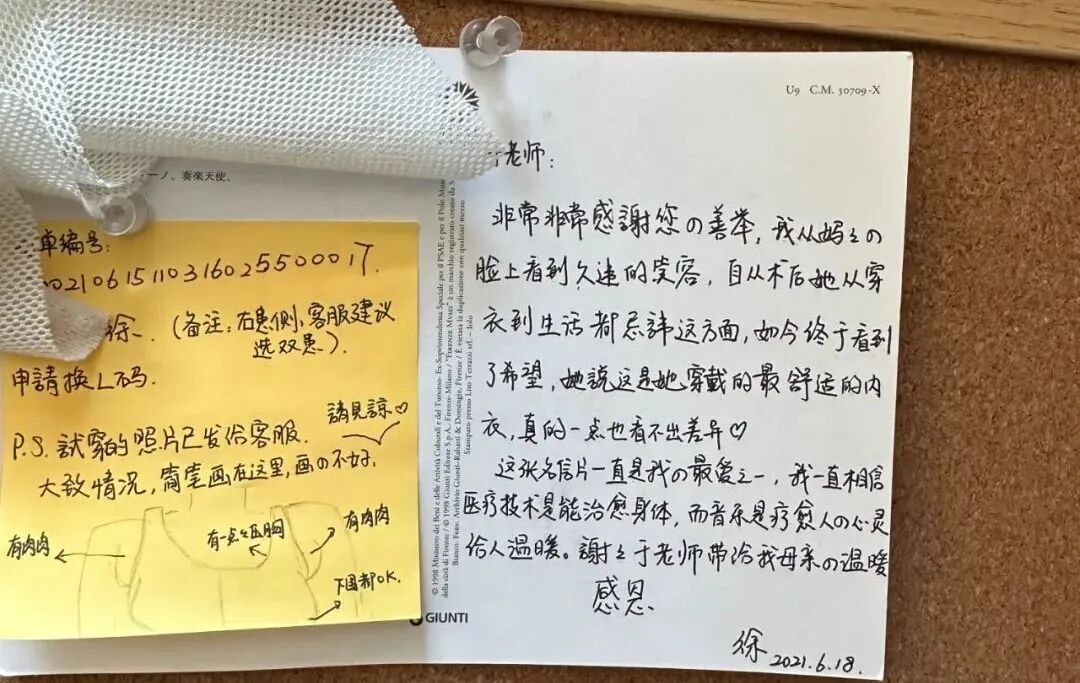 U9 C.M. 50709-X
ノ。奏楽天使。
老师:
非常非常感謝您の善举,我从妈々の
脸上看到久违的笑容,自从术后她从穿
衣到生活都忌諱这方面,如今终于看到
了希望,她說这是她穿戴的最舒适的内
衣,真的一点也看不出差异♡
这张名信片一直是我の最爱之一,我一直相信
医疗技术是能治愈身体,而音乐是疗愈人の心灵
给人温暖。謝々于老师带给我母亲の温暖
感恩
徐 2021.6.18.
单编号:
021061511031602550001
徐. (备注:右患侧,客服建议
选双患).
申請换L码.
P.S. 試穿的照片已发给客服.
請見諒♡
大致情况,简笔画在这里,画の不好.
有肉肉
有一点々压胸
有肉肉
下围都OK.
© 1998 Ministero dei Beni e delle Attività Culturali e del Turismo-
© 1998 Giunti Editore S.p.A., Firenze-Milano
Stampato presso Lito Terrazzi srl. – Iolo
GIUNTI